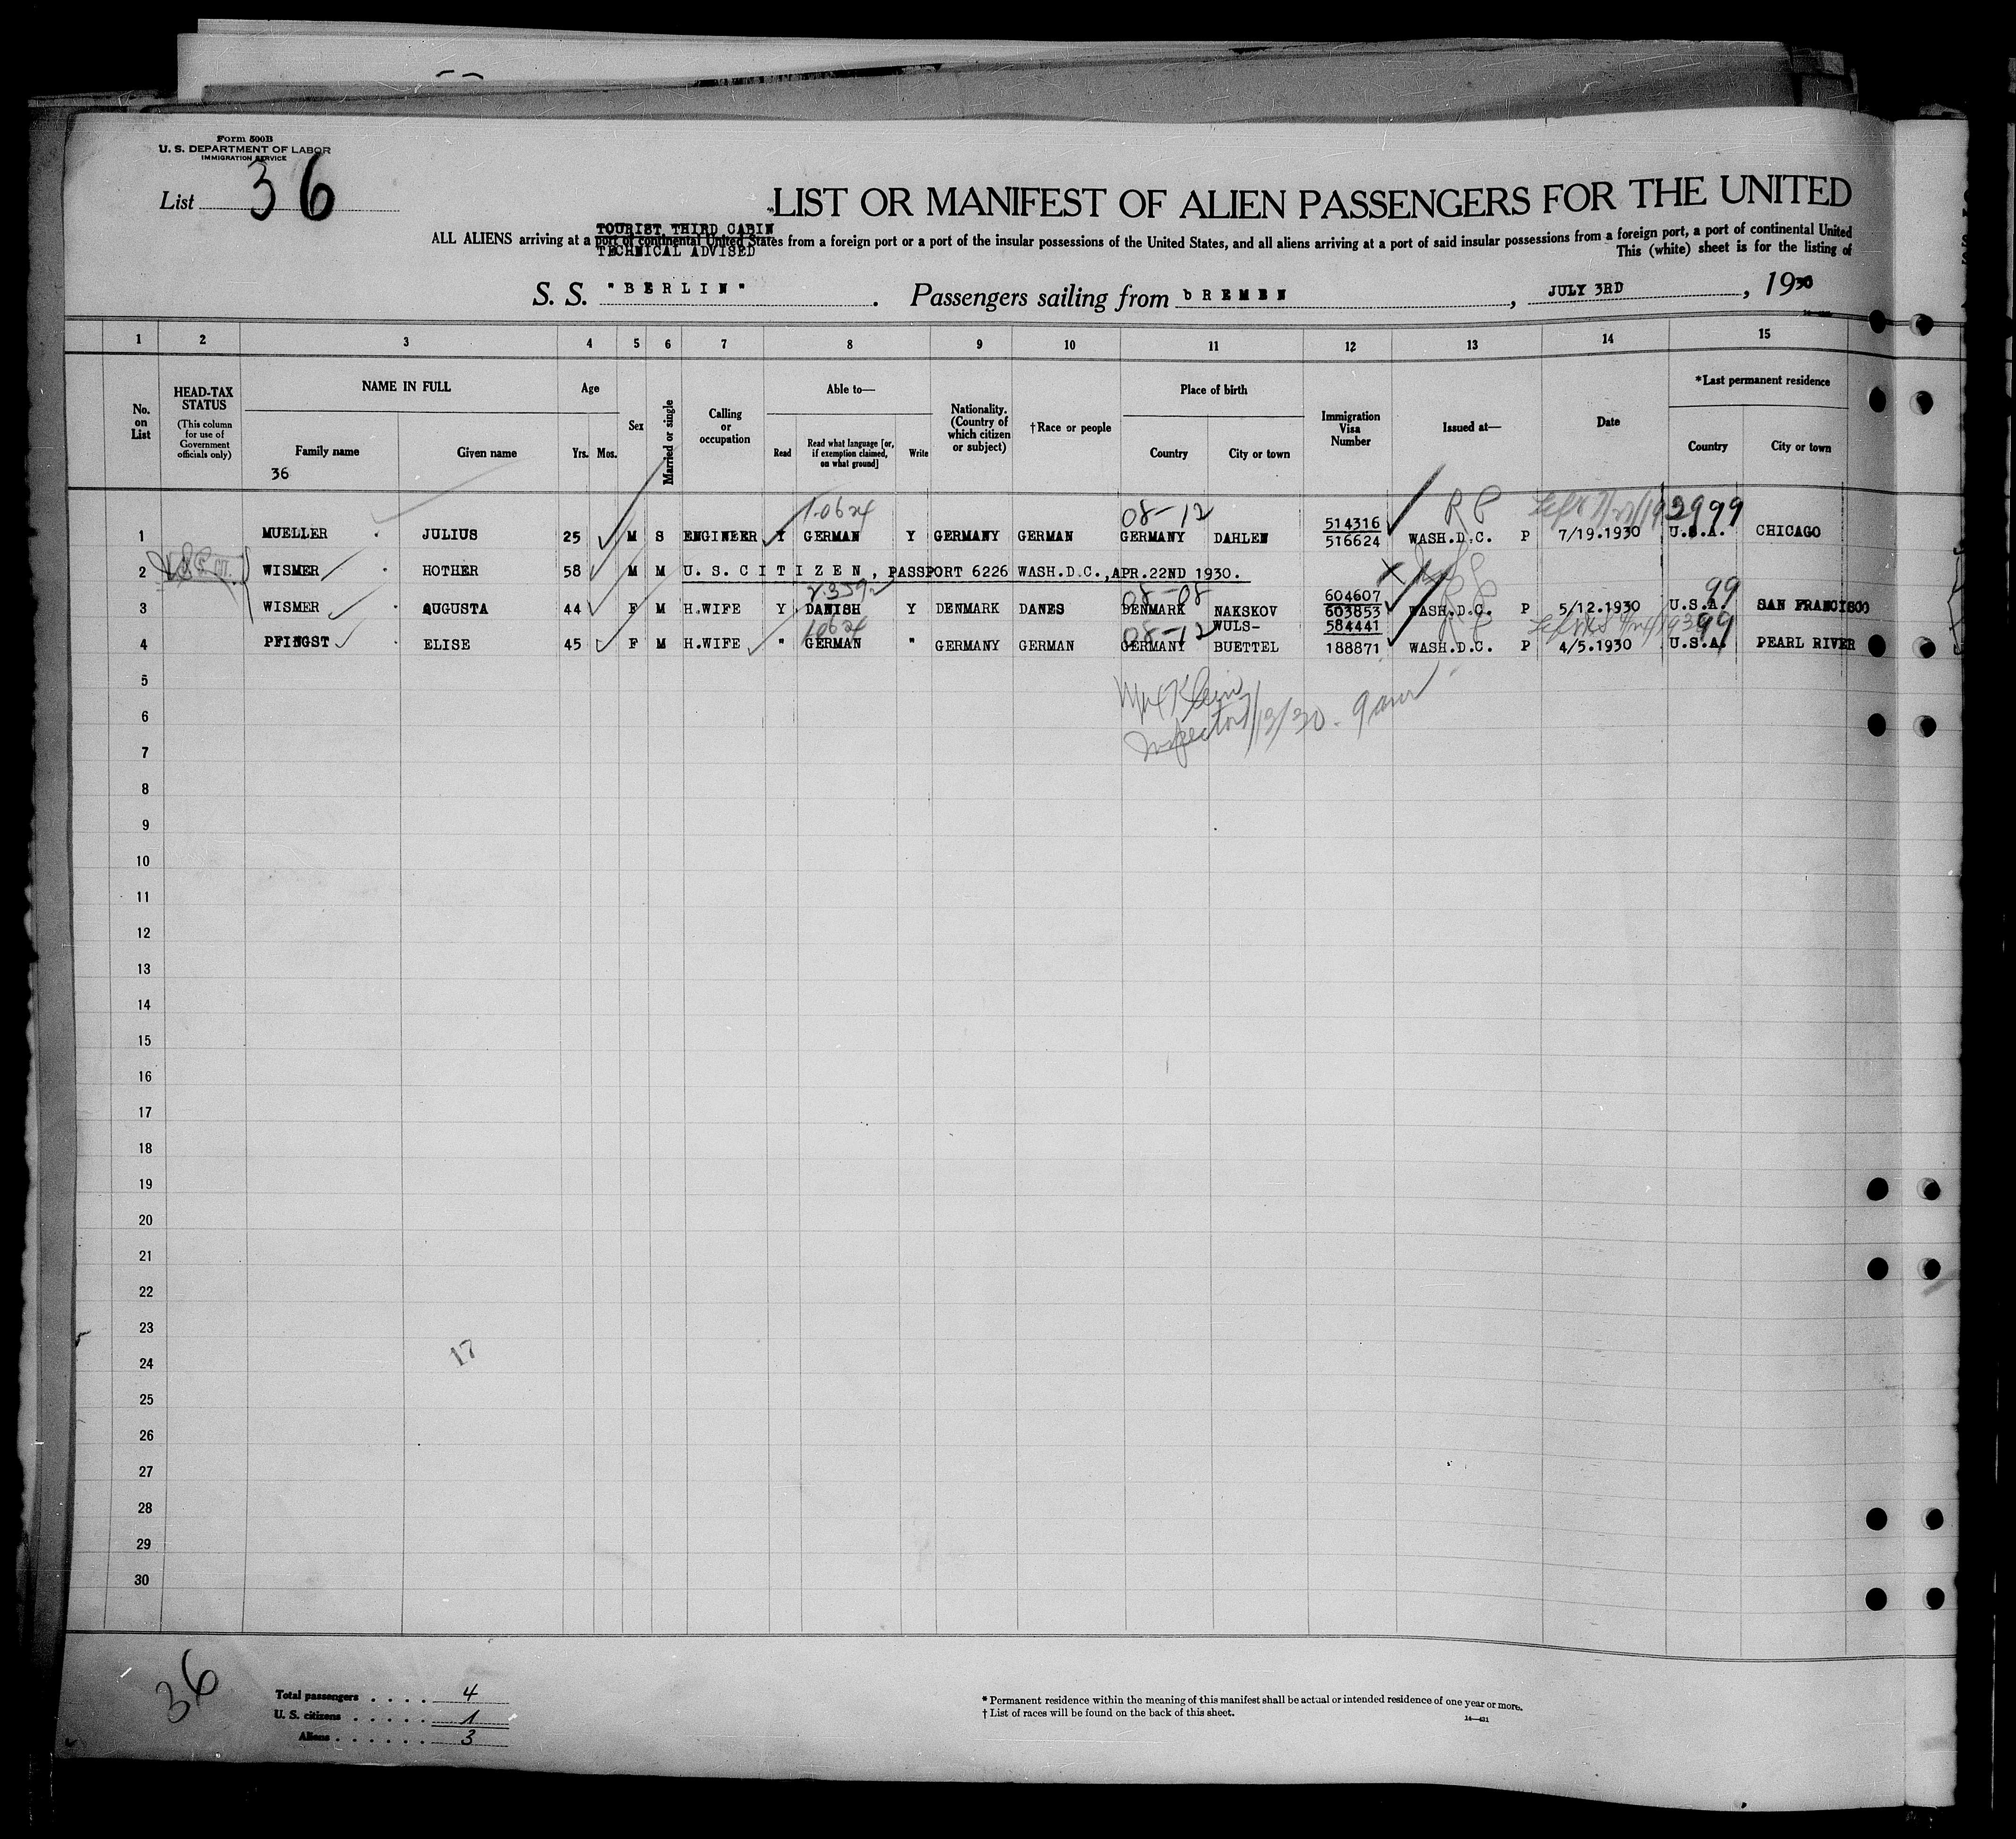 Form 500B
U. S. DEPARTMENT OF LABOR
IMMIGRATION SERVICE
List 36
LIST OR MANIFEST OF ALIEN PASSENGERS FOR THE UNITED
TOURIST THIRD CABIN
ALL ALIENS arriving at a port of continental United States from a foreign port or a port of the insular possessions of the United States, and all aliens arriving at a port of said insular possessions from a foreign port, a port of continental United
TECHNICAL ADVISED
This (white) sheet is for the listing of
S. S. "BERLIN" . Passengers sailing from bREMEN , JULY 3RD , 1930
1 2 3 4 5 6 7 8 9 10 11 12 13 14 15
No. on List
HEAD-TAX STATUS (This column for use of Government officials only)
NAME IN FULL
Family name
Given name
36
Age
Yrs. Mos.
Sex
Married or single
Calling or occupation
Able to—
Read
Read what language [or, if exemption claimed, on what ground]
Write
Nationality. (Country of which citizen or subject)
†Race or people
Place of birth
Country
City or town
Immigration Visa Number
Issued at—
Date
*Last permanent residence
Country
City or town
08-12 514316 RP 99
1 MUELLER JULIUS 25 M S ENGINEER Y GERMAN Y GERMANY GERMAN GERMANY DAHLEN 516624 WASH.D.C. P 7/19.1930 U.S.A. CHICAGO
2 WISMER HOTHER 58 M M U.S.CITIZEN, PASSPORT 6226 WASH.D.C.,APR.22ND 1930.
08-08 604607 99
3 WISMER AUGUSTA 44 F M H.WIFE Y DANISH Y DENMARK DANES DENMARK NAKSKOV 603853 WASH.D.C. P 5/12.1930 U.S.A. SAN FRANCISCO
08-12 WULS- 584441 99
4 PFINGST ELISE 45 F M H.WIFE " GERMAN " GERMANY GERMAN GERMANY BUETTEL 188871 WASH.D.C. P 4/5.1930 U.S.A. PEARL RIVER
5
6
Inspector
7
8
9
10
11
12
13
14
15
16
17
18
19
20
21
22
23
24
17
25
26
27
28
29
30
36
Total passengers . . . . 4
U. S. citizens . . . . . 1
Aliens . . . . . . 3
* Permanent residence within the meaning of this manifest shall be actual or intended residence of one year or more.
† List of races will be found on the back of this sheet.